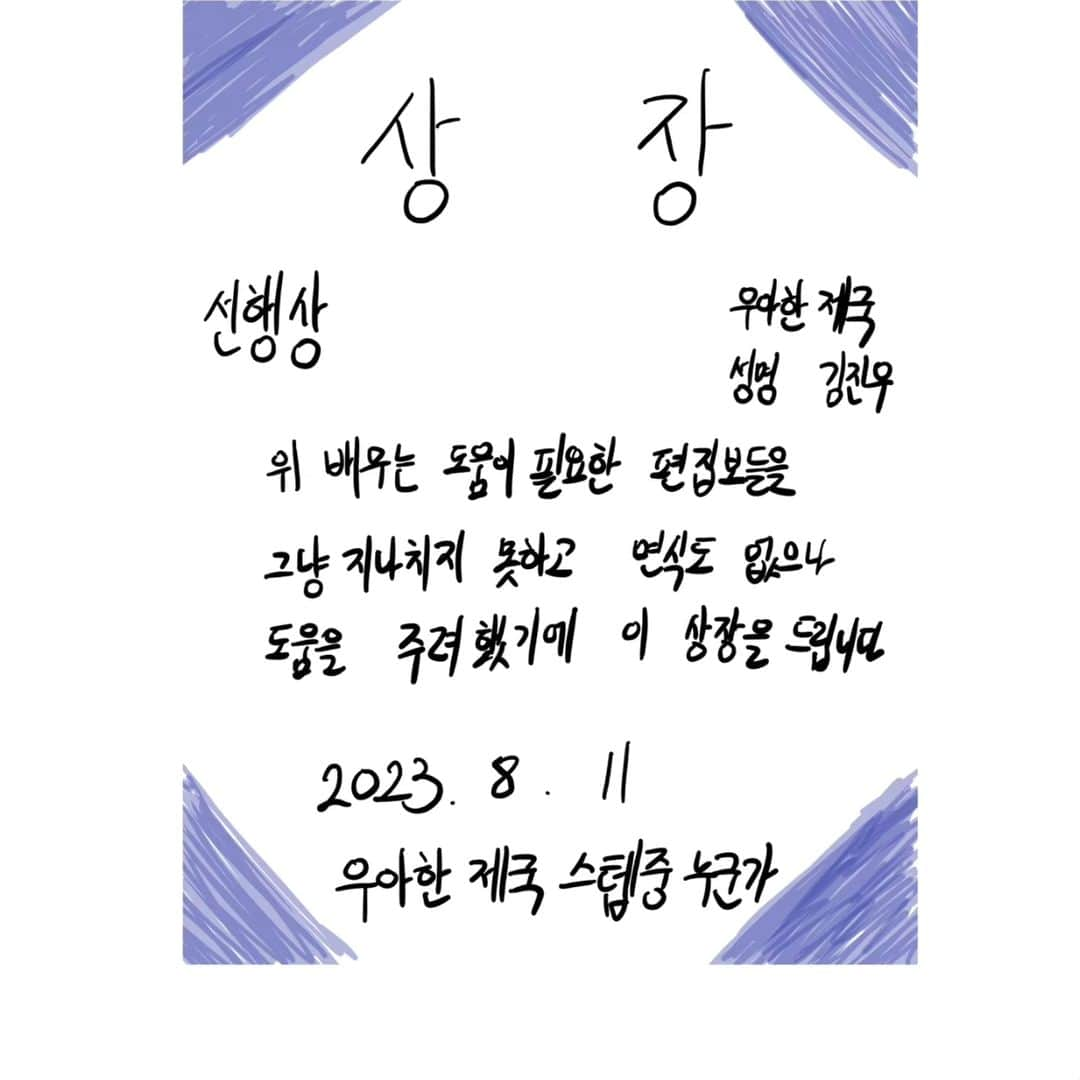 상 장
선행상
우아한 제국
성명 김진우
위 배우는 도움이 필요한 편집보들을
그냥 지나치지 못하고 면식도 없으나
도움을 주려 했기에 이 상장을 드립니다
2023. 8. 11
우아한 제국 스텝중 누군가